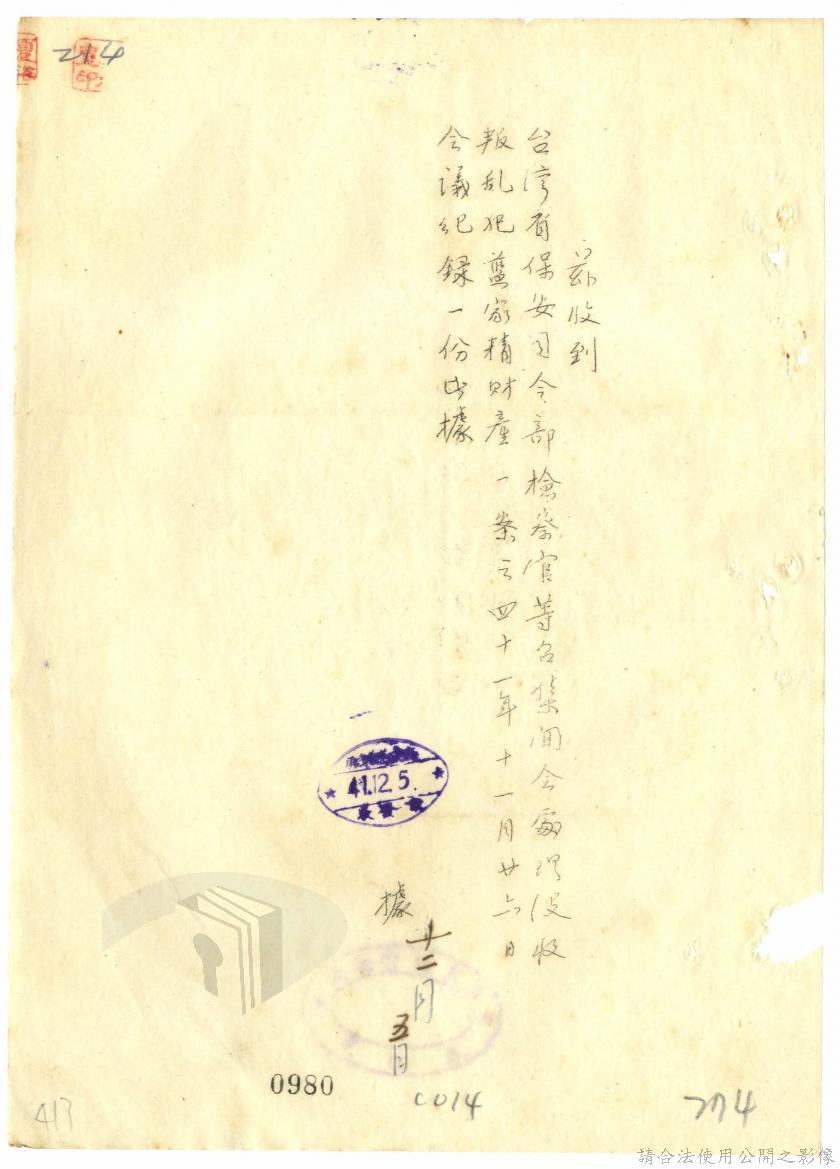 茲收到
台湾省保安司令部檢察官等召集開会處理没收
叛乱犯藍家精財產一案之四十一年十一月廿六日
会議纪録一份此據
據
十二月
五日
41.12.5.
0980
C014
274
413
214
請合法使用公開之影像